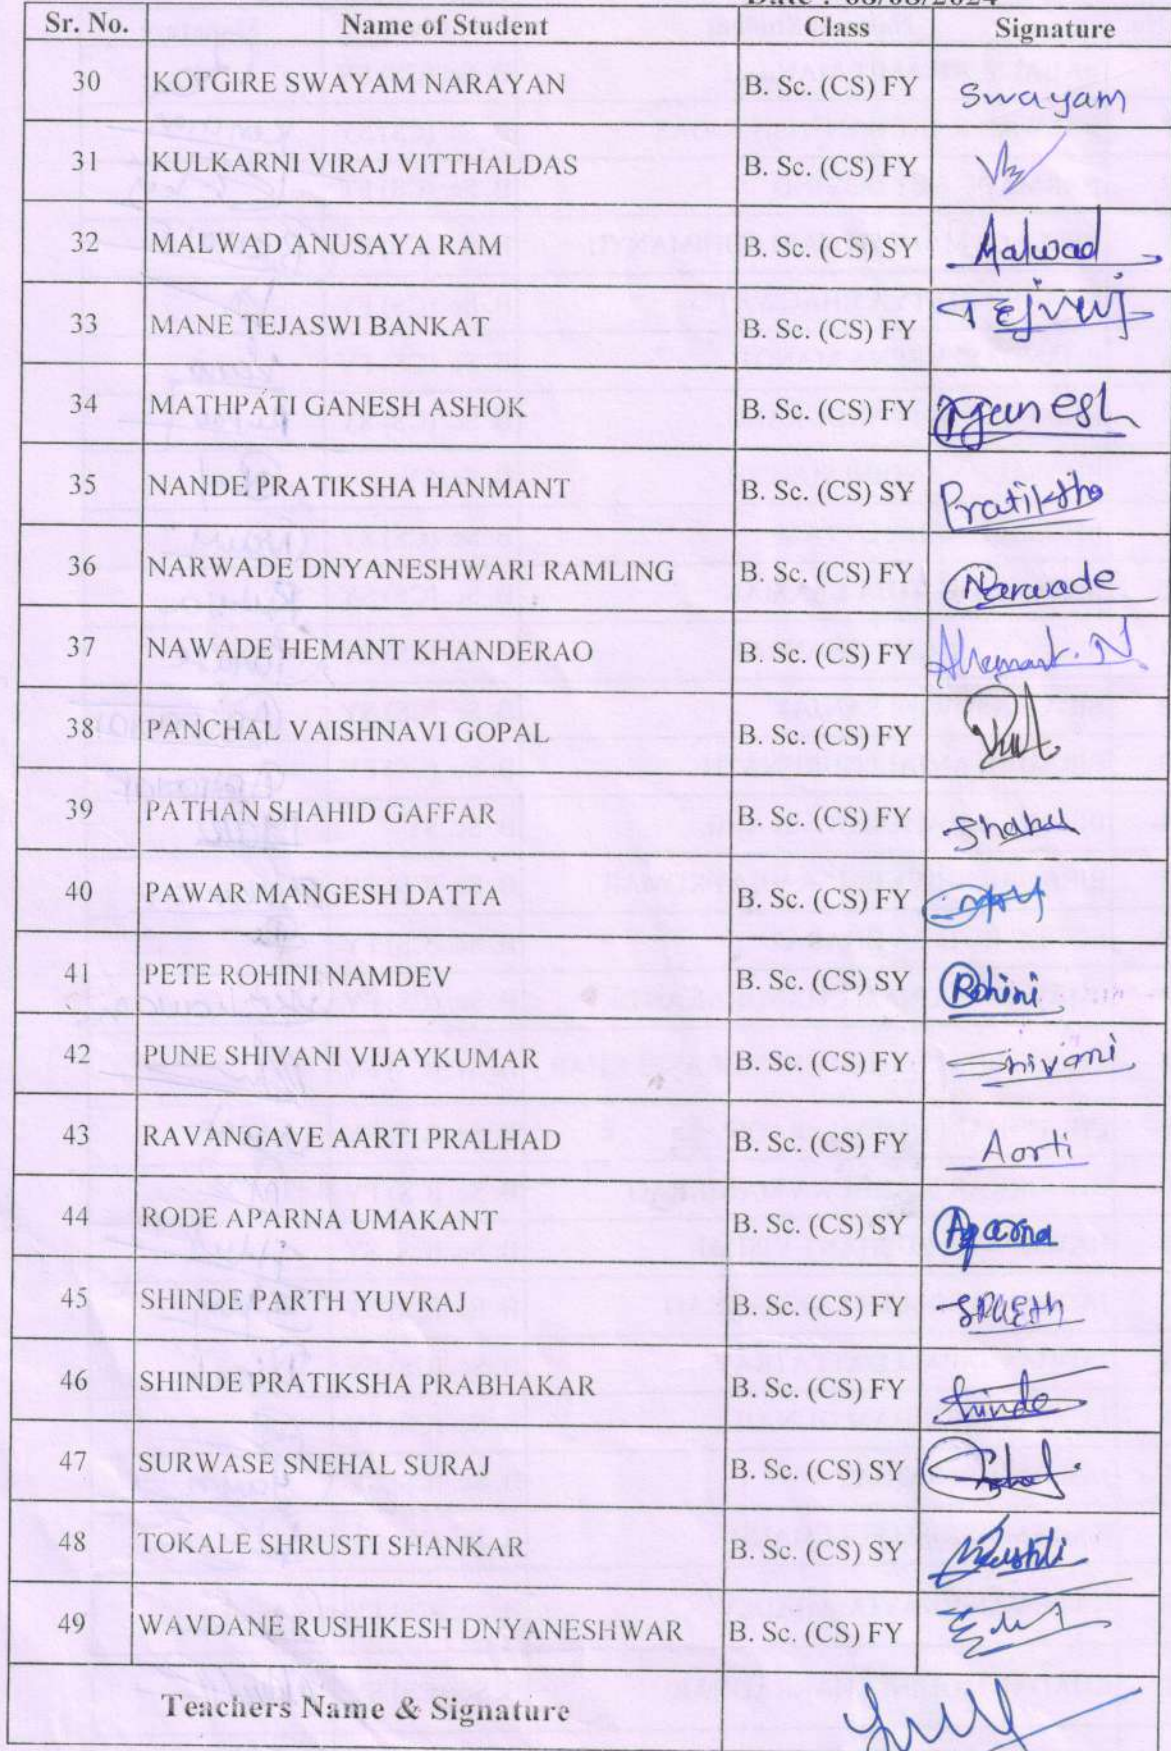 Date : 08/08/2024
Sr. No. Name of Student Class Signature
30 KOTGIRE SWAYAM NARAYAN B. Sc. (CS) FY Swayam
31 KULKARNI VIRAJ VITTHALDAS B. Sc. (CS) FY
32 MALWAD ANUSAYA RAM B. Sc. (CS) SY Malwad
33 MANE TEJASWI BANKAT B. Sc. (CS) FY
34 MATHPATI GANESH ASHOK B. Sc. (CS) FY Ganesh
35 NANDE PRATIKSHA HANMANT B. Sc. (CS) SY Pratiksha
36 NARWADE DNYANESHWARI RAMLING B. Sc. (CS) FY Narwade
37 NAWADE HEMANT KHANDERAO B. Sc. (CS) FY Hemant. N
38 PANCHAL VAISHNAVI GOPAL B. Sc. (CS) FY
39 PATHAN SHAHID GAFFAR B. Sc. (CS) FY
40 PAWAR MANGESH DATTA B. Sc. (CS) FY
41 PETE ROHINI NAMDEV B. Sc. (CS) SY Rohini
42 PUNE SHIVANI VIJAYKUMAR B. Sc. (CS) FY Shivani
43 RAVANGAVE AARTI PRALHAD B. Sc. (CS) FY Aarti
44 RODE APARNA UMAKANT B. Sc. (CS) SY Aparna
45 SHINDE PARTH YUVRAJ B. Sc. (CS) FY
46 SHINDE PRATIKSHA PRABHAKAR B. Sc. (CS) FY Shinde
47 SURWASE SNEHAL SURAJ B. Sc. (CS) SY
48 TOKALE SHRUSTI SHANKAR B. Sc. (CS) SY
49 WAVDANE RUSHIKESH DNYANESHWAR B. Sc. (CS) FY
Teachers Name & Signature